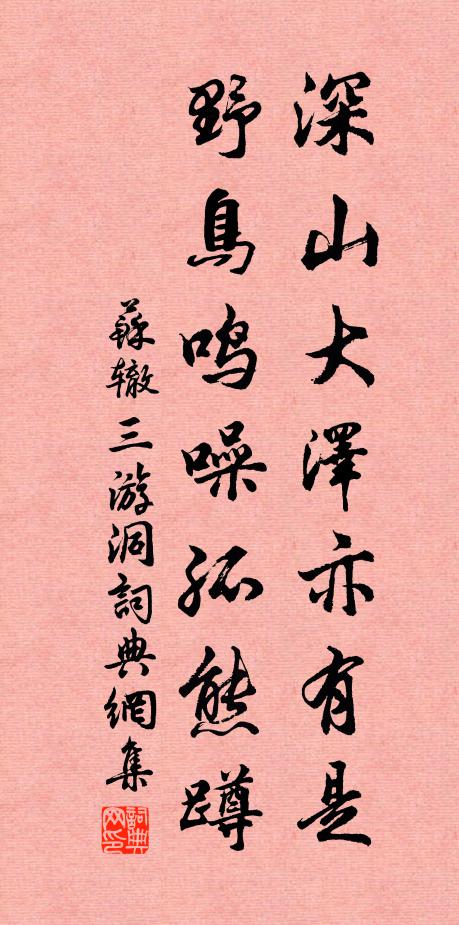 深山大澤亦有是
野鳥鳴噪孤熊蹲
蘇辙三游洞詞典網集
詞典网印